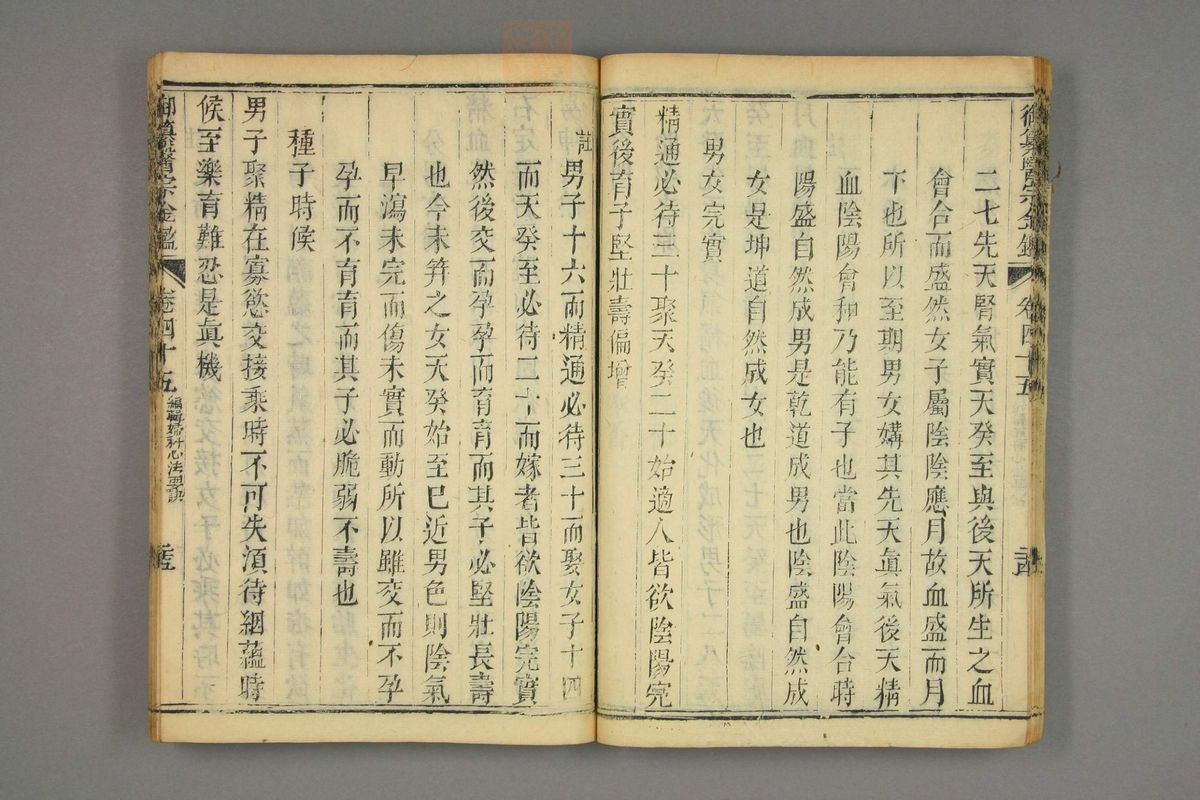 御纂醫宗金鑑 卷四十五
二七先天腎氣實天癸至與後天所生之血
會合而盛然女子屬陰陰應月故血盛而月
下也所以至期男女媾其先天眞氣後天精
血陰陽會和乃能有子也當此陰陽會合時
陽盛自然成男是乾道成男也陰盛自然成
女是坤道自然成女也
男女完實
精通必待三十聚天癸二十始適人皆欲陰陽完
實後育子堅壯壽偏增
註男子十六而精通必待三十而娶女子十四
而天癸至必待二十而嫁者皆欲陰陽完實
然後交而孕孕而育育而其子必堅壯長壽
也今未笄之女天癸始至已近男色則陰氣
早瀉未完而傷未實而動所以雖交而不孕
孕而不育育而其子必脆弱不壽也
種子時候
男子聚精在寡慾交接乘時不可失須待絪蘊時
候至樂育難忍是眞機
御纂醫宗金鑑 卷四十五 編輯婦科心法要訣